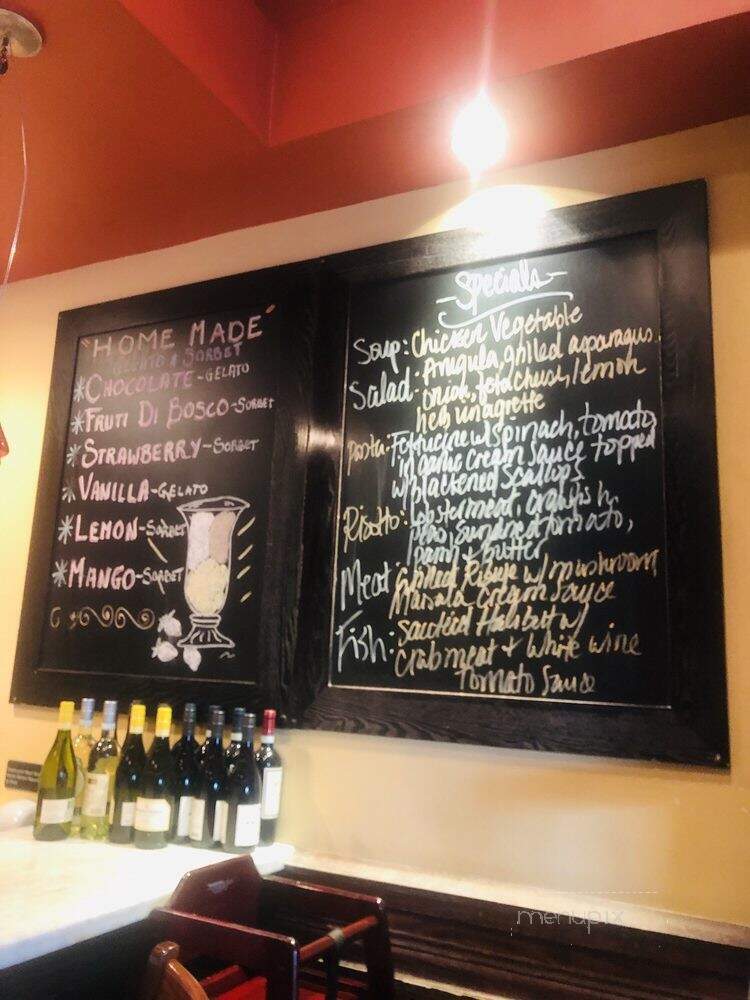 "HOME MADE"
GELATO & SORBET
*CHOCOLATE-GELATO
*FRUTI DI BOSCO-SORBET
*STRAWBERRY-SORBET
*VANILLA-GELATO
*LEMON-SORBET
*MANGO-SORBET
-Specials-
Soup: Chicken Vegetable
Salad: Arugula, grilled asparagus,
onion, feta cheese, lemon
herb vinagrette
Pasta: Fettucine w/ spinach, tomato,
in garlic cream sauce topped
w/ blackened scallops
Risotto: lobster meat, crawfish,
peas, sundried tomato,
parm + butter
Meat: Grilled Ribeye w/ mushroom
Marsala cream sauce
Fish: Sauteed Halibut w/
crabmeat + white wine
Tomato Sauce
menupix